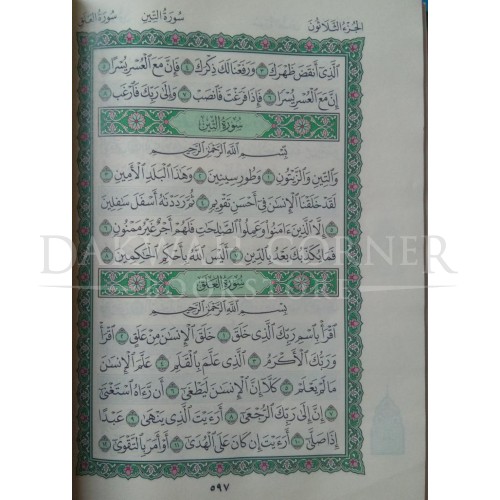 الجزء الثلاثون سورة التين سورة العلق
ٱلَّذِىٓ أَنقَضَ ظَهْرَكَ ٣ وَرَفَعْنَا لَكَ ذِكْرَكَ ٤ فَإِنَّ مَعَ ٱلْعُسْرِ يُسْرًا ٥
إِنَّ مَعَ ٱلْعُسْرِ يُسْرًا ٦ فَإِذَا فَرَغْتَ فَٱنصَبْ ٧ وَإِلَىٰ رَبِّكَ فَٱرْغَب ٨
سورة التين
بِسْمِ ٱللَّهِ ٱلرَّحْمَٰنِ ٱلرَّحِيمِ
وَٱلتِّينِ وَٱلزَّيْتُونِ ١ وَطُورِ سِينِينَ ٢ وَهَٰذَا ٱلْبَلَدِ ٱلْأَمِينِ ٣
لَقَدْ خَلَقْنَا ٱلْإِنسَٰنَ فِىٓ أَحْسَنِ تَقْوِيمٍ ٤ ثُمَّ رَدَدْنَٰهُ أَسْفَلَ سَٰفِلِينَ
٥ إِلَّا ٱلَّذِينَ ءَامَنُوا۟ وَعَمِلُوا۟ ٱلصَّٰلِحَٰتِ فَلَهُمْ أَجْرٌ غَيْرُ مَمْنُونٍ ٦
فَمَا يُكَذِّبُكَ بَعْدُ بِٱلدِّينِ ٧ أَلَيْسَ ٱللَّهُ بِأَحْكَمِ ٱلْحَٰكِمِينَ ٨
DAKWAH CORNER
BOOKSTORE
سورة العلق
بِسْمِ ٱللَّهِ ٱلرَّحْمَٰنِ ٱلرَّحِيمِ
ٱقْرَأْ بِٱسْمِ رَبِّكَ ٱلَّذِى خَلَقَ ١ خَلَقَ ٱلْإِنسَٰنَ مِنْ عَلَقٍ ٢ ٱقْرَأْ
وَرَبُّكَ ٱلْأَكْرَمُ ٣ ٱلَّذِى عَلَّمَ بِٱلْقَلَمِ ٤ عَلَّمَ ٱلْإِنسَٰنَ
مَا لَمْ يَعْلَمْ ٥ كَلَّآ إِنَّ ٱلْإِنسَٰنَ لَيَطْغَىٰٓ ٦ أَن رَّءَاهُ ٱسْتَغْنَىٰٓ
٧ إِنَّ إِلَىٰ رَبِّكَ ٱلرُّجْعَىٰٓ ٨ أَرَءَيْتَ ٱلَّذِى يَنْهَىٰ ٩ عَبْدًا
إِذَا صَلَّىٰٓ ١٠ أَرَءَيْتَ إِن كَانَ عَلَى ٱلْهُدَىٰٓ ١١ أَوْ أَمَرَ بِٱلتَّقْوَىٰٓ ١٢
٥٩٧